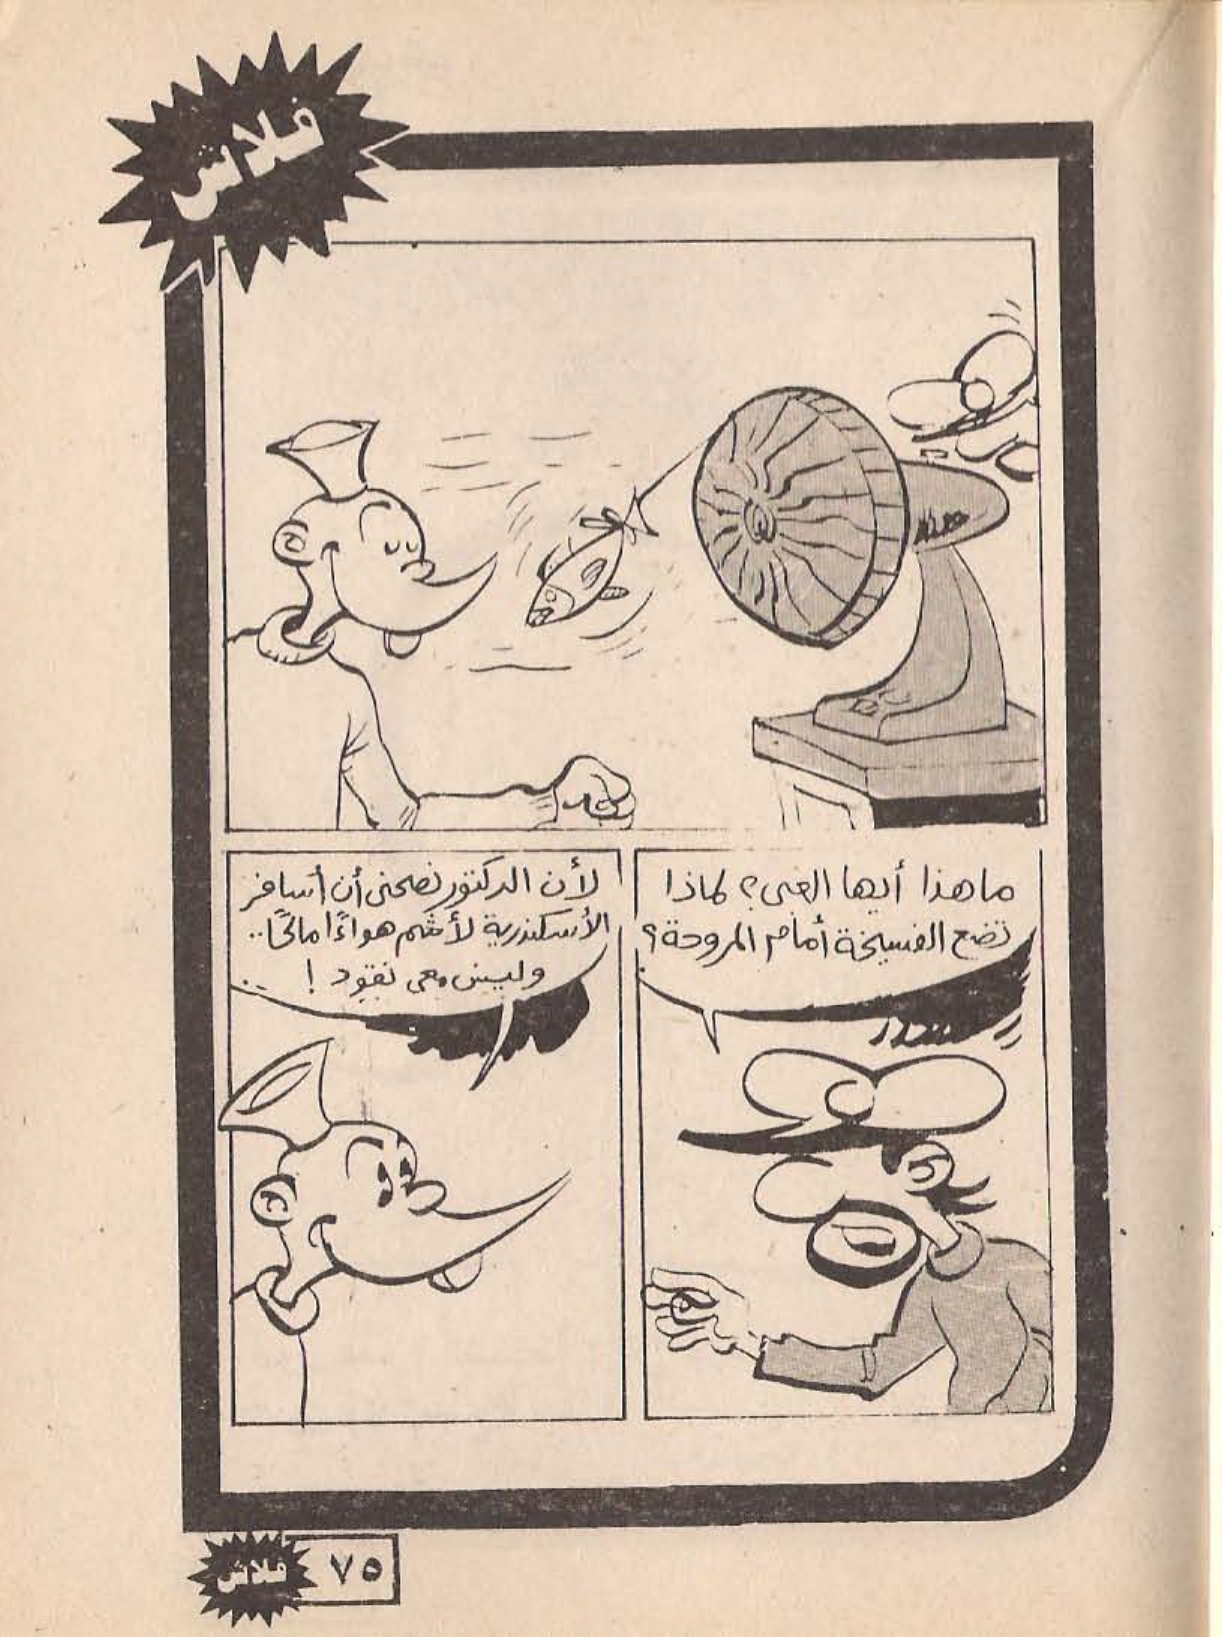 فلاش
ماهذا أيها الغبى؟ لماذا
تضع الفسيخة أمام المروحة؟
لأن الدكتور نصحنى أن أسافر
الأسكندرية لأشم هواءً مالحًا..
وليس معى نقود !
فلاش ٧٥